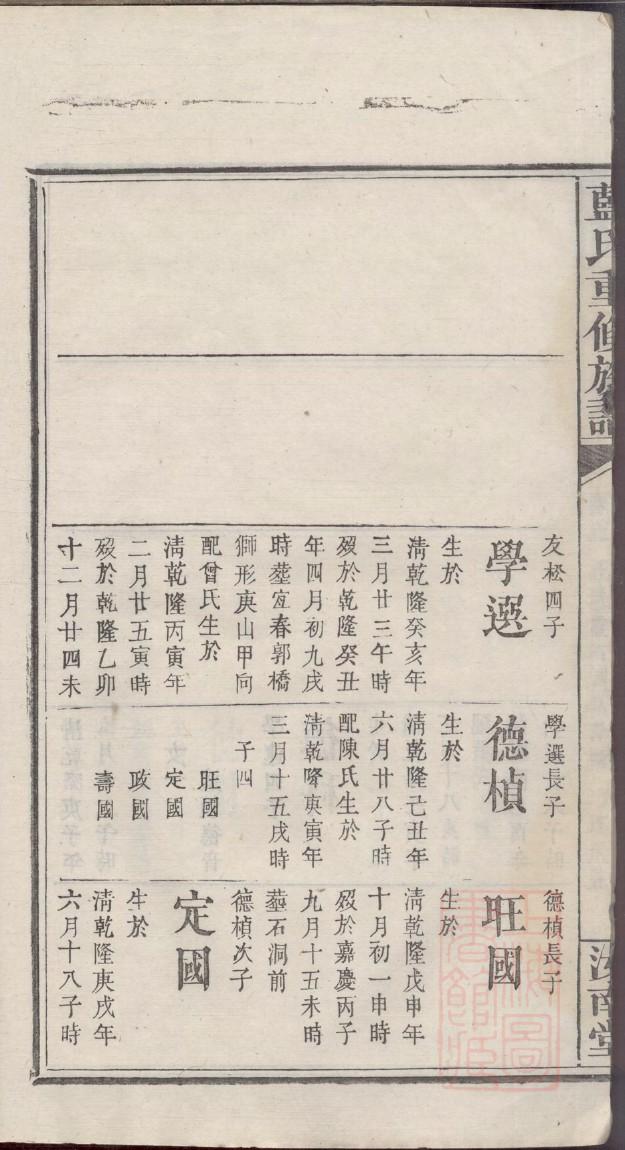 藍氏重修族譜
汝南堂
友松四子
學選
生於
淸乾隆癸亥年
三月廿三午時
歿於乾隆癸丑
年四月初九戌
時塟宜春郭橋
獅形庚山甲向
配曾氏生於
淸乾隆丙寅年
二月廿五寅時
歿於乾隆乙卯
十二月廿四未
學選長子
德楨
生於
淸乾隆己丑年
六月廿八子時
配陳氏生於
淸乾隆庚寅年
三月十五戌時
子四
旺國
定國
政國
壽國
德楨長子
旺國
生於
淸乾隆戊申年
十月初一申時
歿於嘉慶丙子
九月十五未時
塟石洞前
德楨次子
定國
生於
淸乾隆庚戌年
六月十八子時